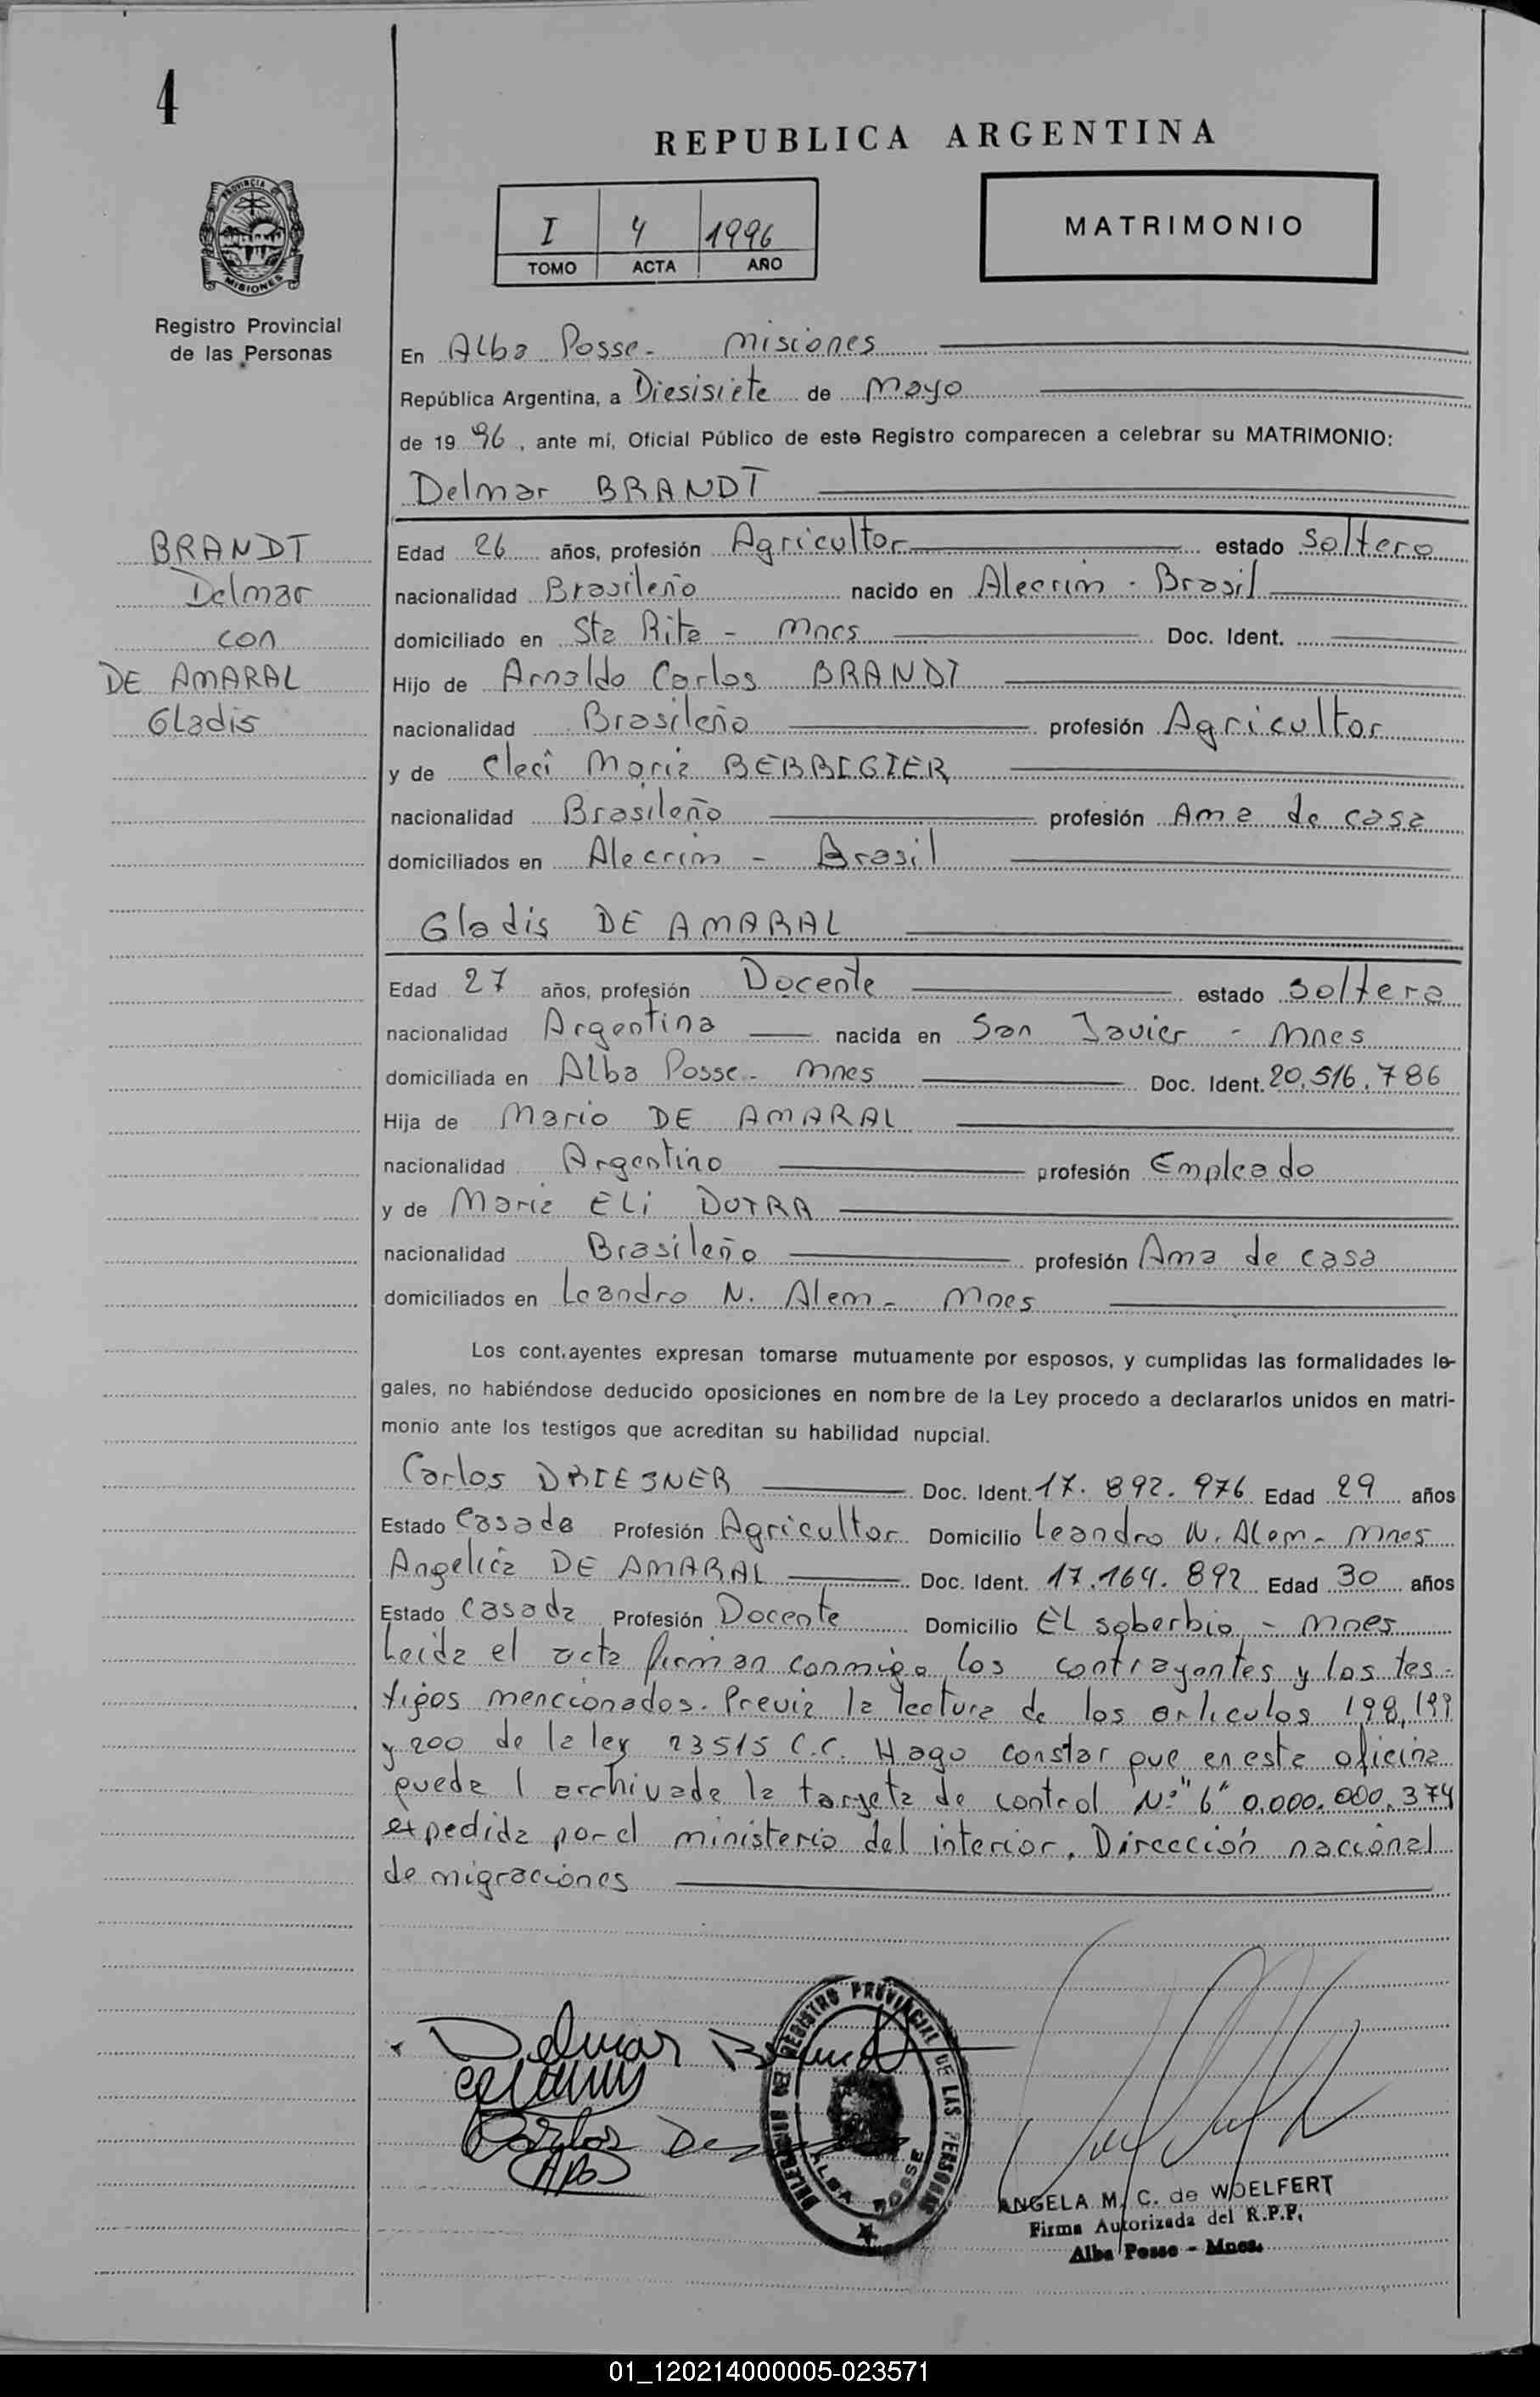 4
REPUBLICA ARGENTINA
I 4 1996
TOMO ACTA AÑO
MATRIMONIO
PROVINCIA DE
MISIONES
Registro Provincial
de las Personas
En Alba Posse - Misiones
República Argentina, a Diesisiete de Mayo
de 19 96, ante mí, Oficial Público de este Registro comparecen a celebrar su MATRIMONIO:
Delmar BRANDT
BRANDT
Delmar
con
DE AMARAL
Gladis
Edad 26 años, profesión Agricultor estado Soltero
nacionalidad Brasileño nacido en Alecrim - Brasil
domiciliado en Sta Rita - Mnes Doc. Ident.
Hijo de Arnaldo Carlos BRANDT
nacionalidad Brasileño profesión Agricultor
y de Cleci Maria BERBIGIER
nacionalidad Brasileño profesión Ama de casa
domiciliados en Alecrim - Brasil
Gladis DE AMARAL
Edad 27 años, profesión Docente estado Soltera
nacionalidad Argentina nacida en San Javier - Mnes
domiciliada en Alba Posse - Mnes Doc. Ident. 20.516.786
Hija de Mario DE AMARAL
nacionalidad Argentino profesión Empleado
y de Maria ELi DUTRA
nacionalidad Brasileño profesión Ama de casa
domiciliados en Leandro N. Alem - Mnes
Los contrayentes expresan tomarse mutuamente por esposos, y cumplidas las formalidades le-
gales, no habiéndose deducido oposiciones en nombre de la Ley procedo a declararlos unidos en matri-
monio ante los testigos que acreditan su habilidad nupcial.
Carlos DRIESNER Doc. Ident. 17.892.976 Edad 29 años
Estado Casado Profesión Agricultor Domicilio Leandro N. Alem - Mnes
Angelica DE AMARAL Doc. Ident. 17.164.892 Edad 30 años
Estado Casada Profesión Docente Domicilio EL soberbio - Mnes
Leida el acta firman conmigo los contrayentes y los tes-
tigos mencionados. Previa la lectura de los articulos 198, 199
y 200 de la ley 23515 C.C. Hago constar que en esta oficina
queda archivada la tarjeta de control Nº "6" 0.000.000.374
expedida por el ministerio del interior. Dirección nacional
de migraciones
Delmar Brandt
Carlos
REGISTRO PROVINCIAL DE LAS PERSONAS
ALBA POSSE
ANGELA M. C. de WOELFERT
Firma Autorizada del R.P.P.
Alba Posse - Mnes.
01_120214000005-023571